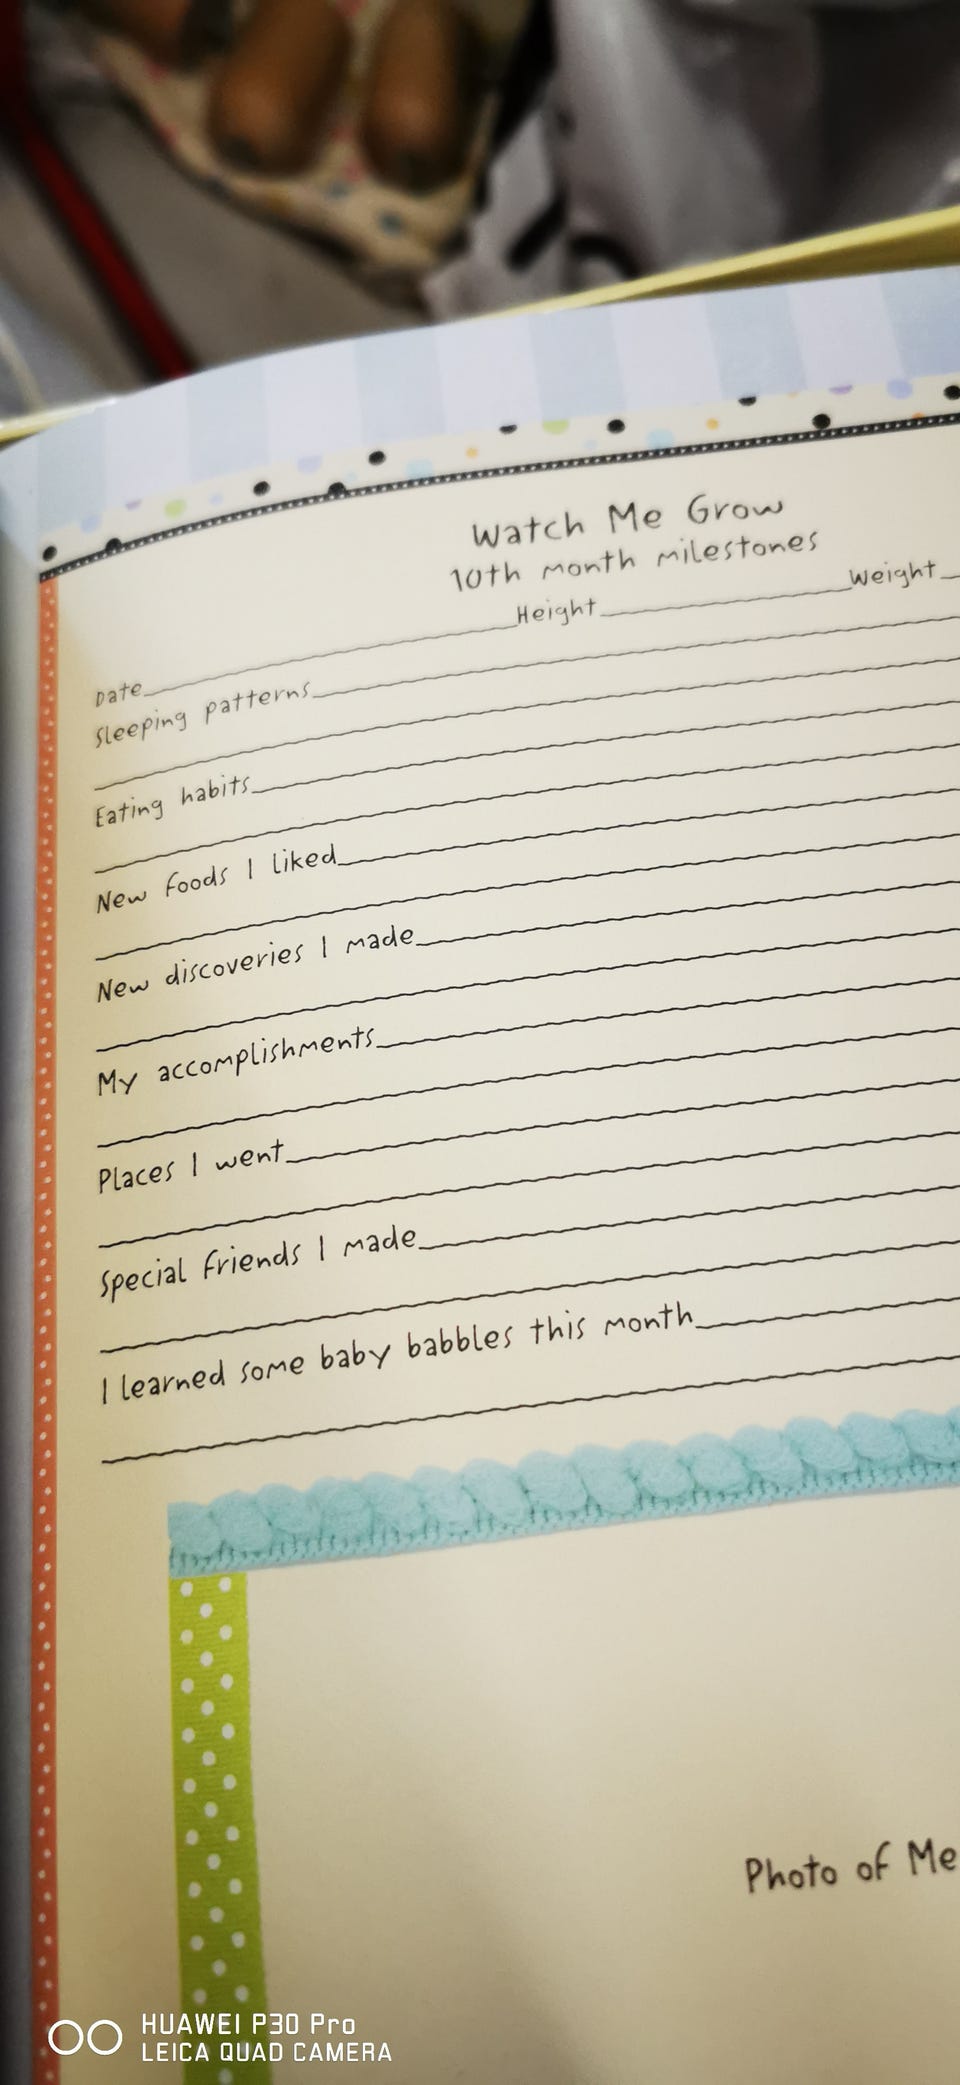 Watch Me Grow
10th month milestones
Date Height Weight
Sleeping patterns
Eating habits
New foods I liked
New discoveries I made
My accomplishments
Places I went
Special friends I made
I learned some baby babbles this month
Photo of Me
HUAWEI P30 Pro
LEICA QUAD CAMERA